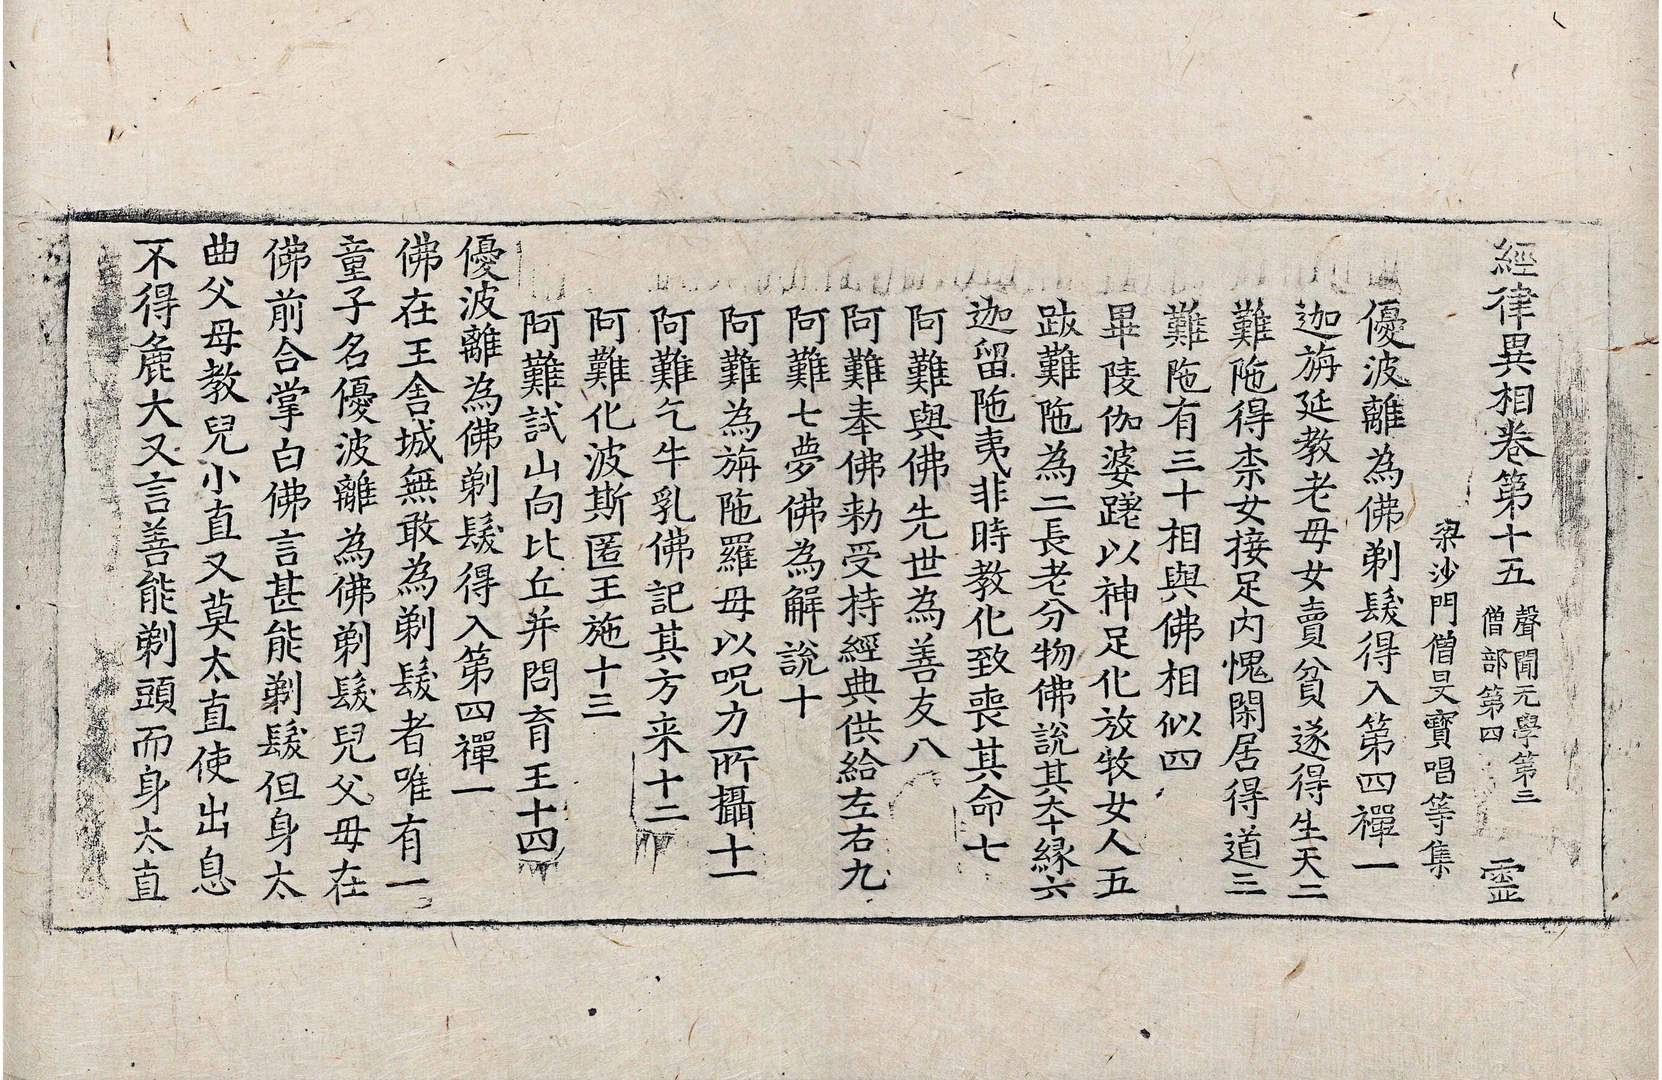 經律異相卷第十五 聲聞无學第三 僧部第四 靈
梁沙門僧旻寶唱等集
優波離為佛剃髮得入第四禪一
迦旃延教老母女賣貧遂得生天二
難陁得柰女接足内愧閑居得道三
難陁有三十相與佛相似四
畢陵伽婆蹉以神足化放牧女人五
跋難陁為二長老分物佛說其本緣六
迦留陁夷非時教化致喪其命七
阿難與佛先世為善友八
阿難奉佛勑受持經典供給左右九
阿難七夢佛為解說十
阿難為旃陁羅母以呪力所攝十一
阿難乞牛乳佛記其方来十二
阿難化波斯匿王施十三
阿難試山向比丘并問育王十四
優波離為佛剃髮得入第四禪一
佛在王舍城無敢為剃髮者唯有一
童子名優波離為佛剃髮兒父母在
佛前合掌白佛言甚能剃髮但身太
曲父母教兒小直又莫太直使出息
不得麁大又言善能剃頭而身太直